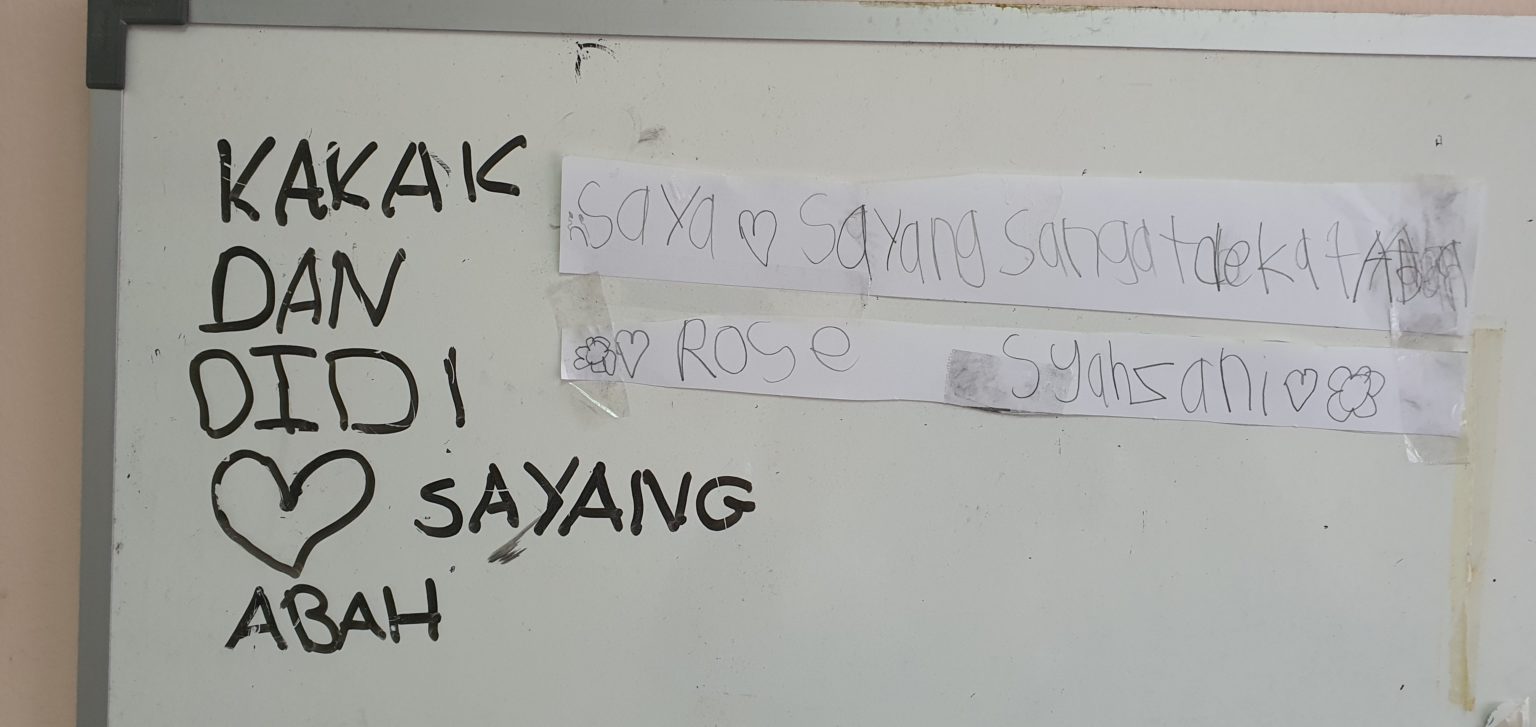 KAKAK
DAN
DIDI
♡ SAYANG
ABAH
Saya ♡ Sayang Sangat dekat Abah
♡ Rose Syahsani ♡